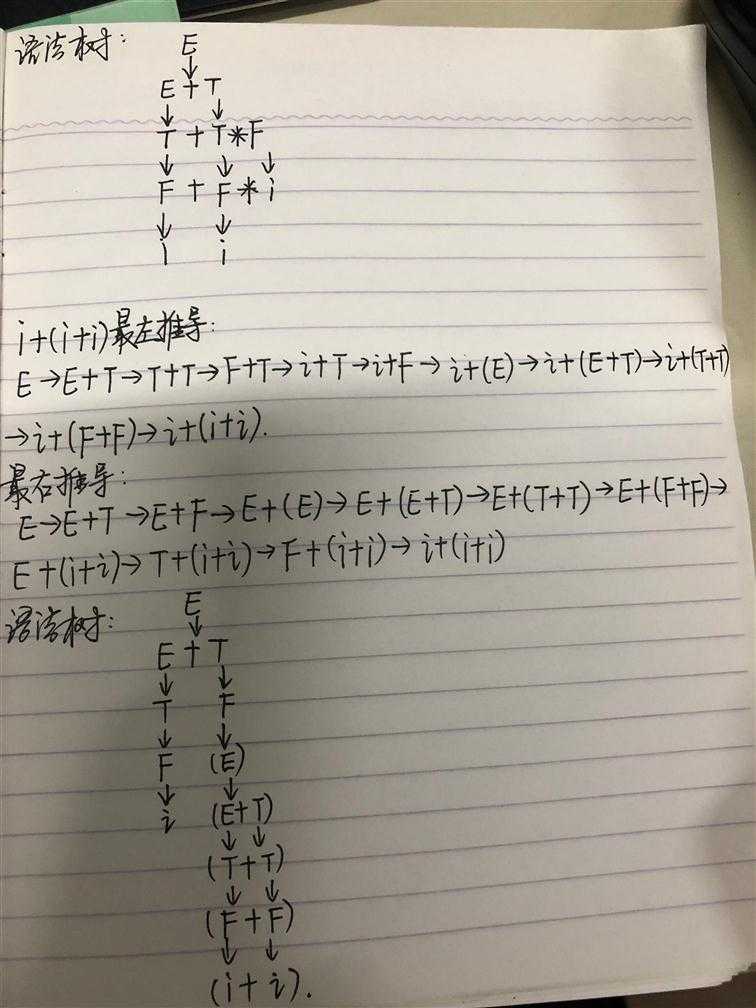 语法树:
E
↓
E+T
↓ ↓
T+T*F
↓ ↓ ↓
F+F*i
↓ ↓
i i
i+(i+i)最左推导:
E→E+T→T+T→F+T→i+T→i+F→i+(E)→i+(E+T)→i+(T+T)
→i+(F+F)→i+(i+i).
最右推导:
E→E+T→E+F→E+(E)→E+(E+T)→E+(T+T)→E+(F+F)→
E+(i+i)→T+(i+i)→F+(i+i)→i+(i+i)
语法树:
E
↓
E+T
↓ ↓
T F
↓ ↓
F (E)
↓ ↓
i (E+T)
↓ ↓
(T+T)
↓ ↓
(F+F)
↓ ↓
(i+i).